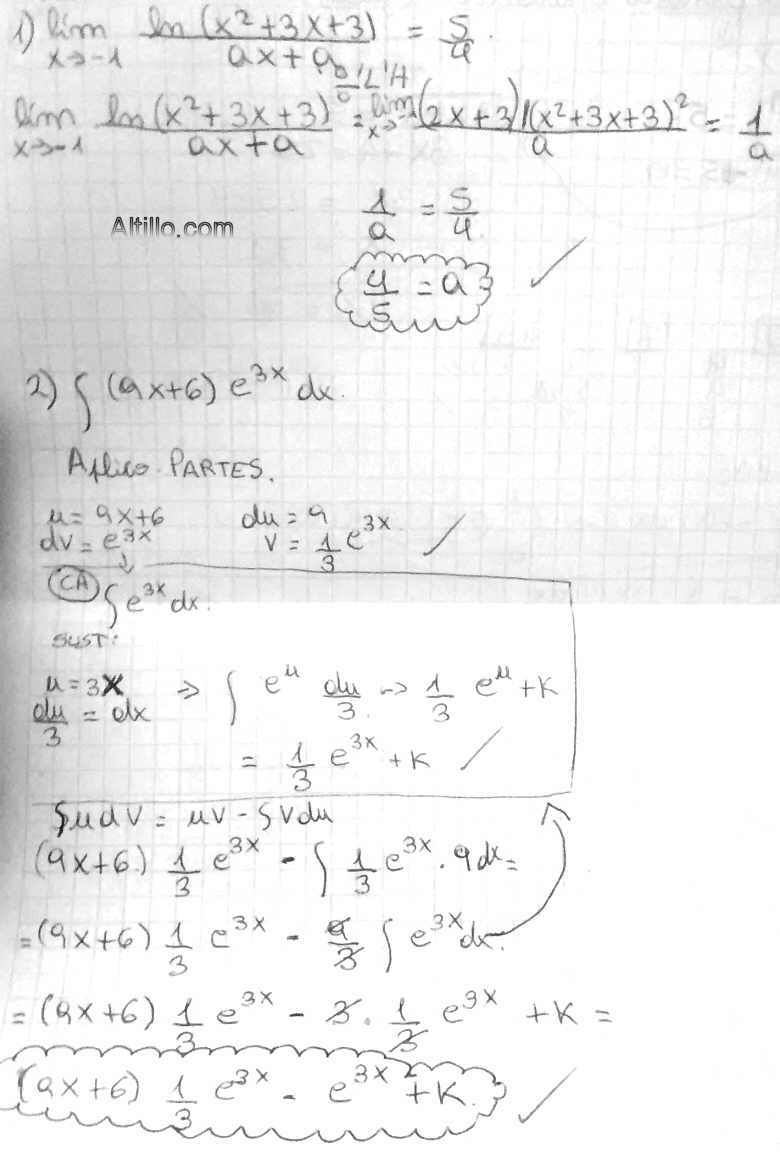 1) lím x→-1 ln(x²+3x+3) / ax+a = 5/4.
0/0 L'H
lím x→-1 ln(x²+3x+3) / ax+a = lím x→-1 (2x+3)/(x²+3x+3)² / a = 1/a
Altillo.com
1/a = 5/4
4/5 = a ✓
2) ∫ (9x+6) e^3x dx.
Aplico PARTES.
u= 9x+6 du = 9
dv = e^3x v = 1/3 e^3x ✓
CA ∫ e^3x dx.
SUST:
u=3x ⇒ ∫ e^u du/3. → 1/3 e^u + K
du/3 = dx
= 1/3 e^3x + K ✓
∫u dv = uv - ∫v du
(9x+6) 1/3 e^3x - ∫ 1/3 e^3x . 9 dx =
= (9x+6) 1/3 e^3x - 9/3 ∫ e^3x dx.
= (9x+6) 1/3 e^3x - 3 . 1/3 e^3x + K =
(9x+6) 1/3 e^3x - e^3x + K. ✓